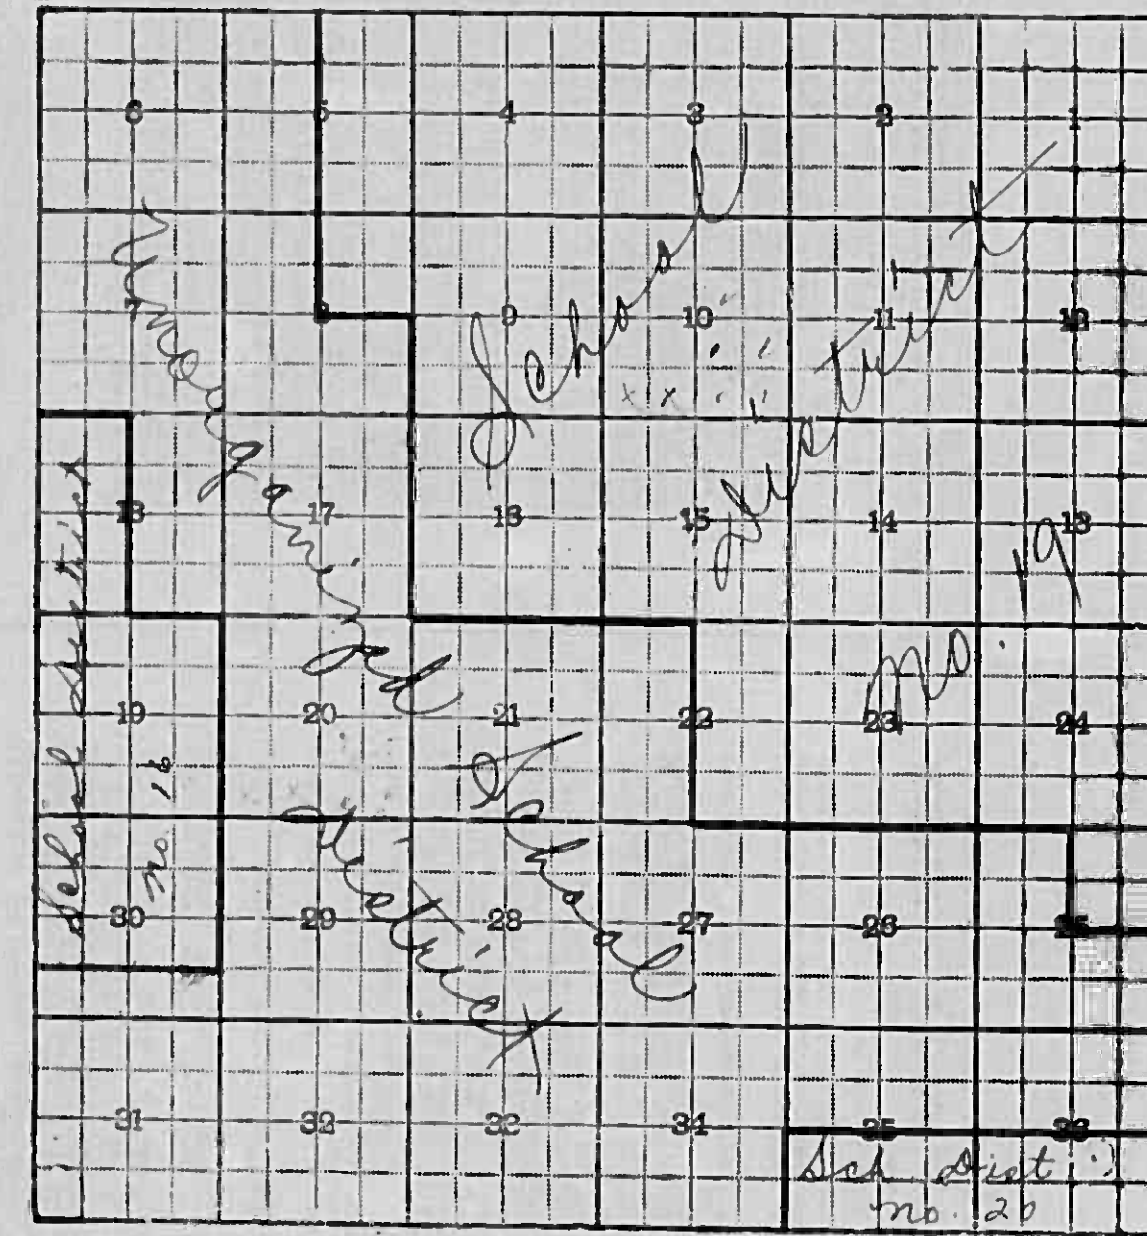 6 5 4 3 2 1
7 8 9 10 11 12
18 17 16 15 14 13
19 20 21 22 23 24
30 29 28 27 26 25
31 32 33 34 35 36
School
District
No. 19
Unorganized
School
District
School District
No. 18
Sch Dist
No. 20